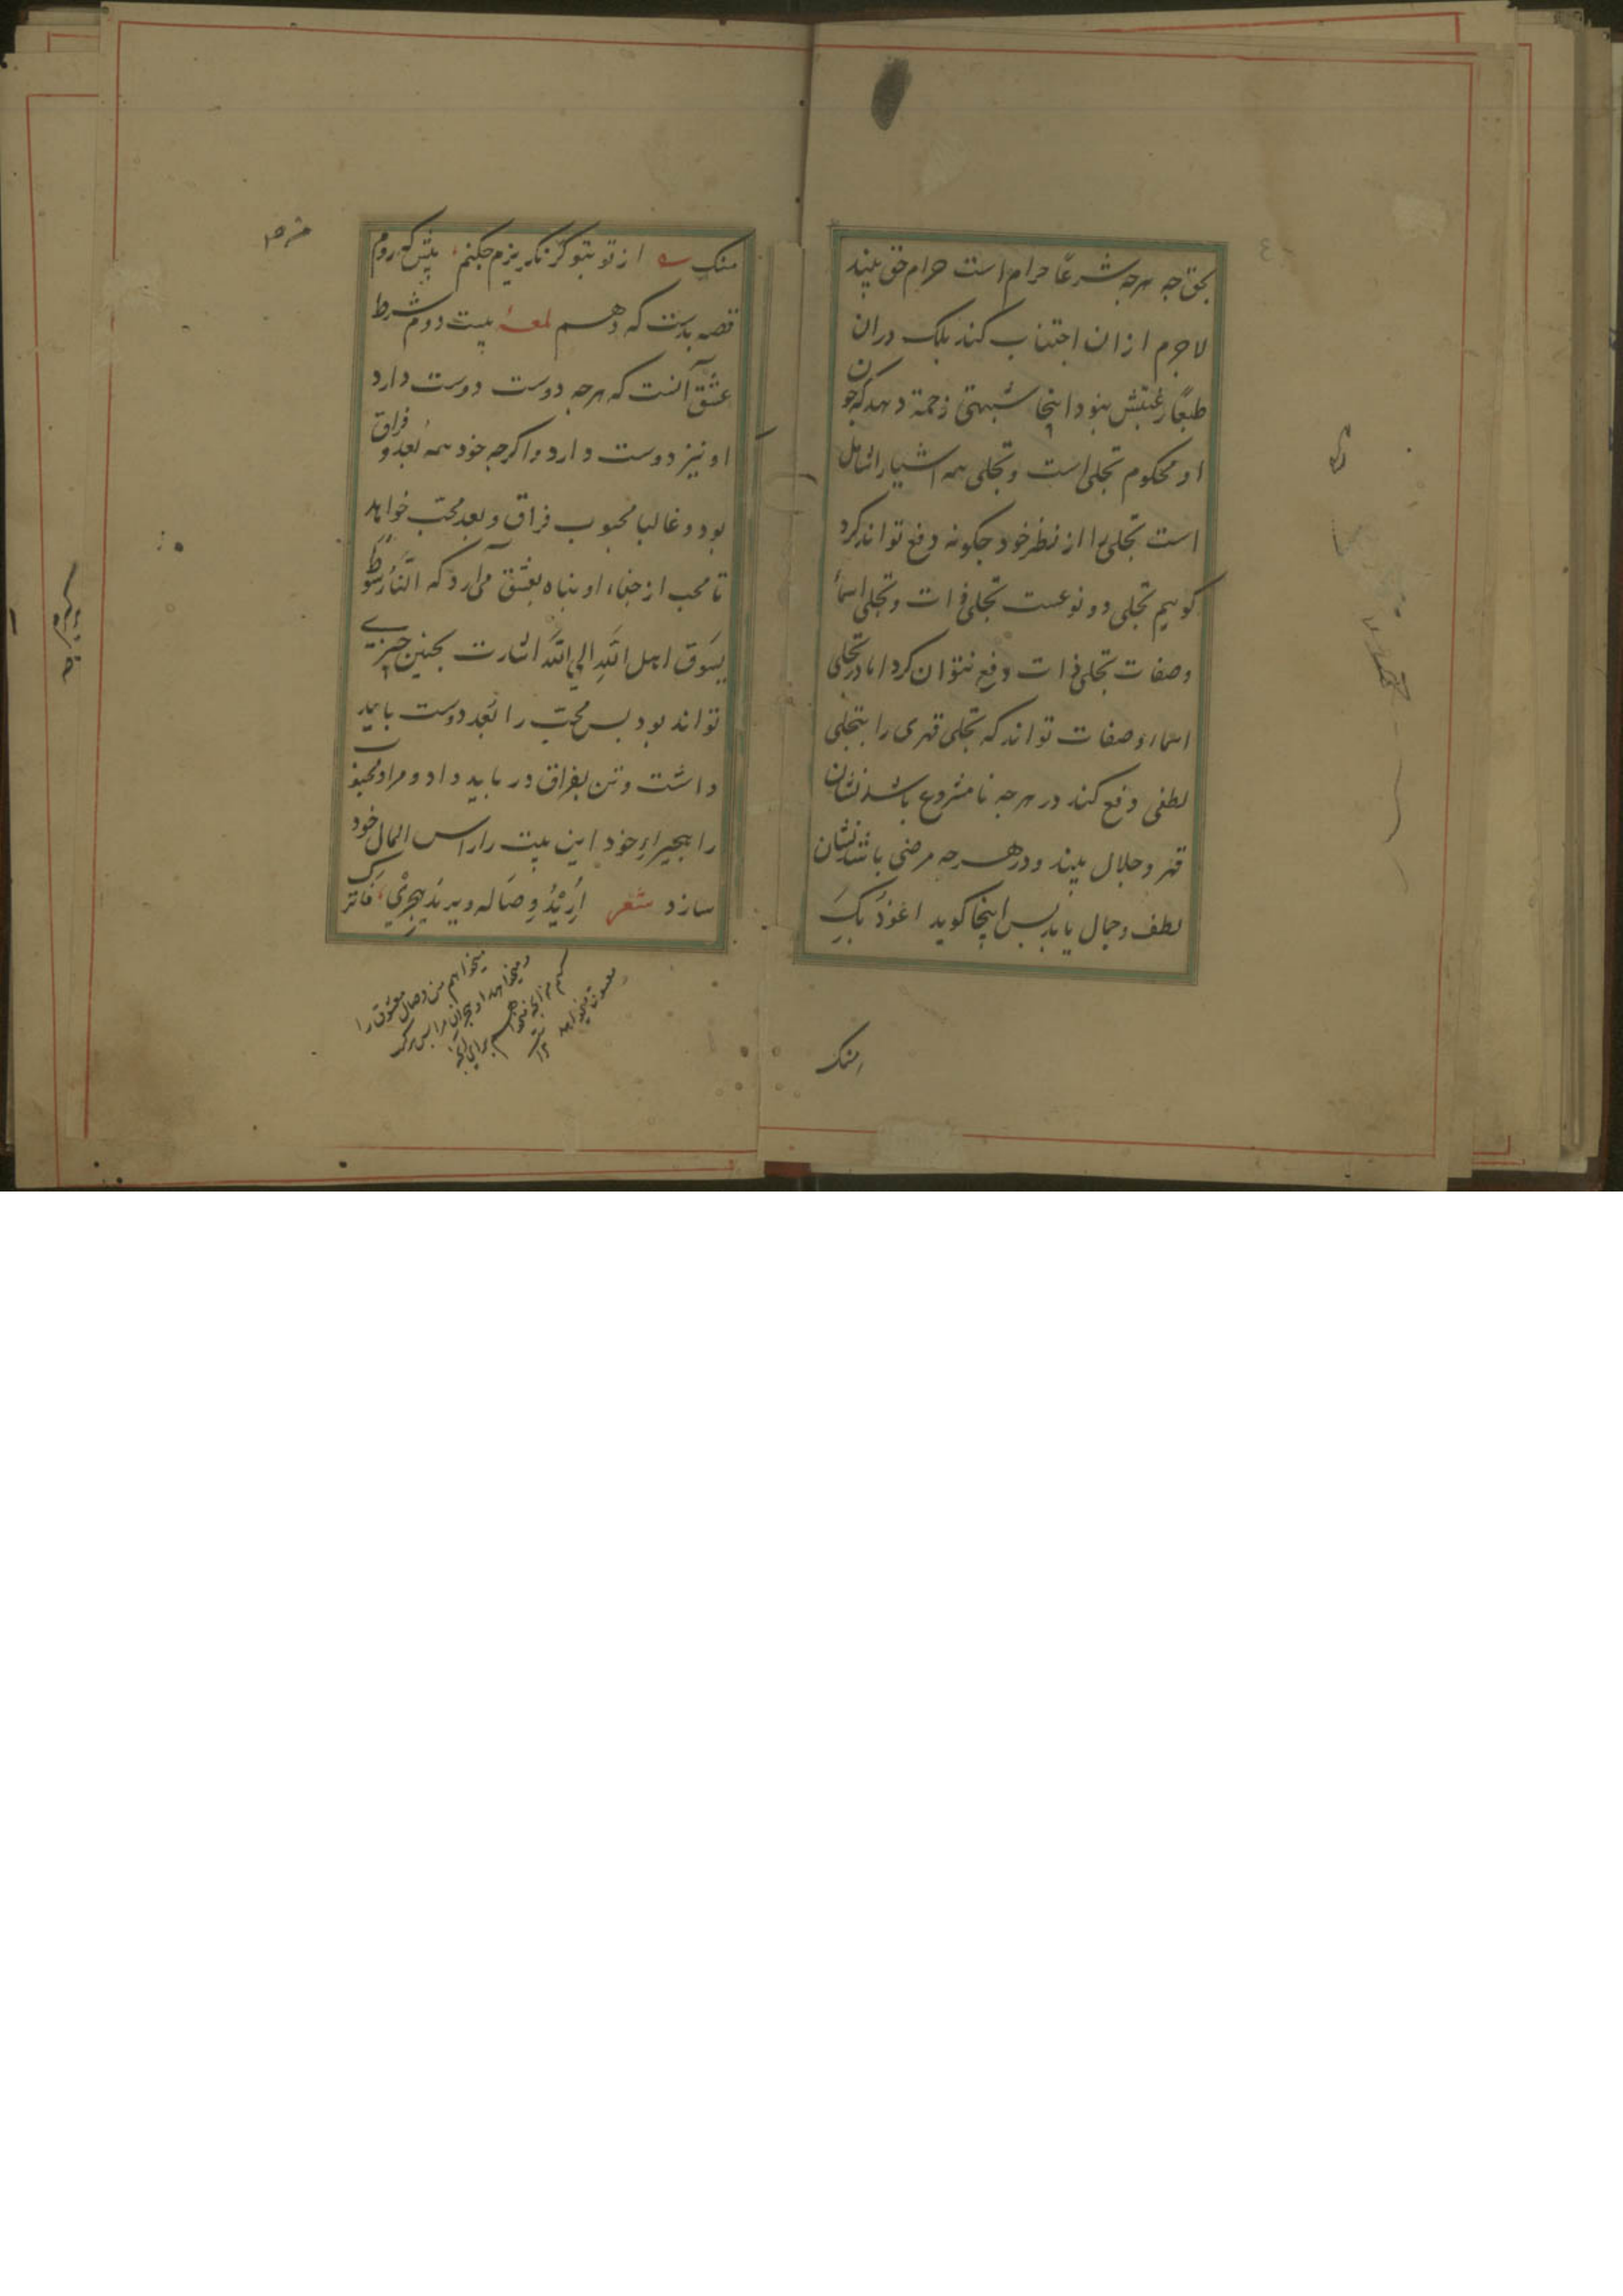 بحق جه هرجه شرعًا حرام است حرام حق بیند
لاجرم ازان اجتناب کند بلک دران
طبعًا رغبتش نبود اینجا شبهتی زحمة دهد که جون
او محکوم تجلی است و تجلی همه اشیا را شامل
است تجلی را از نظر خود جکونه دفع تواند کرد
کوییم تجلی دو نوعست تجلی ذات و تجلی اسمأ
وصفات تجلی ذات دفع نتوان کرد اما در تجلی
اسما وصفات تواند که تجلی قهری را بتجلی
لطفی دفع کند در هرجه نا مشروع باشد نشان
قهر و جلال بیند ودر هرجه مرضی باشد نشان
لطف و جمال یابد بس اینجا کوید اعُوذُ بِکَ
منک
منک از تو بتو کر نکریزم جکنم بیش که روم
قصه بدست که دهم لمعهٔ بیست دوم شرط
عشق آنست که هرجه دوست دوست دارد
او نیز دوست دارد واکرجه خود همه بُعد و فراق
بود و غالبا محبوب فراق و بعد محب خواهد
تا محب از جفاء او بناه بعشق می آرد که النّارُ سَوطٌ
یسَوق اهل اللّهِ الي اللّه اشارت بجنین جیزے
تواند بود بس محبّ را بُعد دوست باید
داشت وتن بفراق در باید داد و مراد محبوب
را بهجیراءِ خود این بیت را راس المال خود
سازد شعر اُرِیْدُ وِصَاله ویریدُ هِجْرِيْ فاترک
میخواهم من وصال معشوق را
ومیخواهد او هجران مرا بس ترک